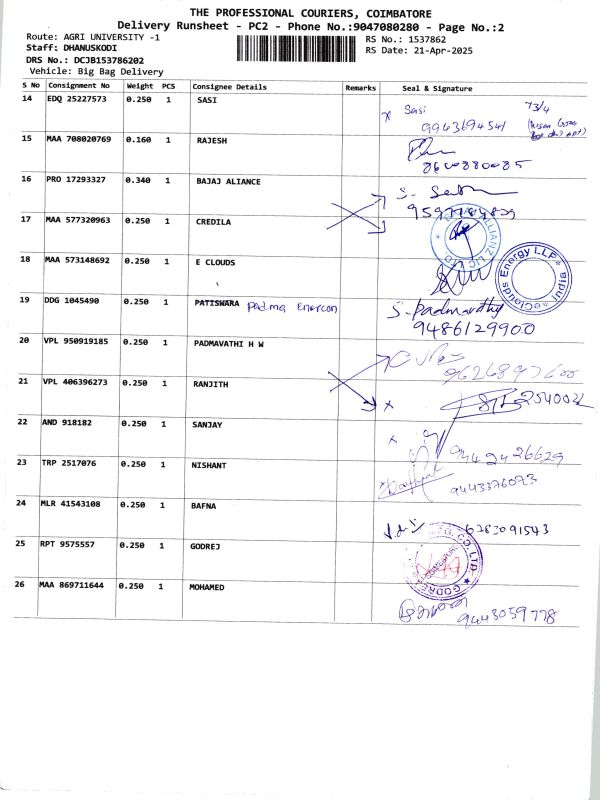 THE PROFESSIONAL COURIERS, COIMBATORE
Delivery Runsheet - PC2 - Phone No.:9047080280 - Page No.:2
Route: AGRI UNIVERSITY -1
RS No.: 1537862
Staff: DHANUSKODI
RS Date: 21-Apr-2025
DRS No.: DCJB153786202
Vehicle: Big Bag Delivery
S No Consignment No Weight PCS Consignee Details Remarks Seal & Signature
14 EDQ 25227573 0.250 1 SASI x Sasi 73/4
9943694541
15 MAA 708020769 0.160 1 RAJESH
8600880085
16 PRO 17293327 0.340 1 BAJAJ ALIANCE S.
17 MAA 577320963 0.250 1 CREDILA
18 MAA 573148692 0.250 1 E CLOUDS eClouds Energy LLP India
19 DDG 1045490 0.250 1 PATISWARA Padma Enercon S. Padmavathy
9486129900
20 VPL 950919185 0.250 1 PADMAVATHI H W
9626897600
21 VPL 406396273 0.250 1 RANJITH x
22 AND 918182 0.250 1 SANJAY x
9442426629
23 TRP 2517076 0.250 1 NISHANT
9443376093
24 MLR 41543108 0.250 1 BAFNA 6783091543
25 RPT 9575557 0.250 1 GODREJ
26 MAA 869711644 0.250 1 MOHAMED
9443059778